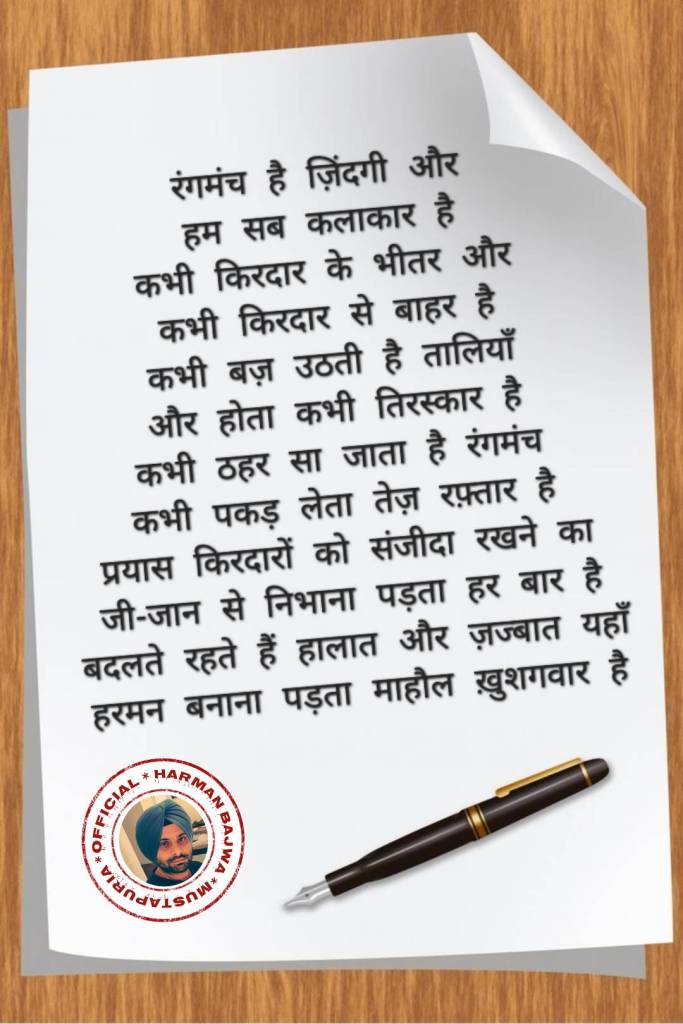 रंगमंच है ज़िंदगी और
हम सब कलाकार है
कभी किरदार के भीतर और
कभी किरदार से बाहर है
कभी बज़ उठती है तालियाँ
और होता कभी तिरस्कार है
कभी ठहर सा जाता है रंगमंच
कभी पकड़ लेता तेज़ रफ़्तार है
प्रयास किरदारों को संजीदा रखने का
जी-जान से निभाना पड़ता हर बार है
बदलते रहते हैं हालात और ज़ज्बात यहाँ
हरमन बनाना पड़ता माहौल ख़ुशगवार है
*OFFICIAL*HARMAN BAJWA*MUSTAPURIA